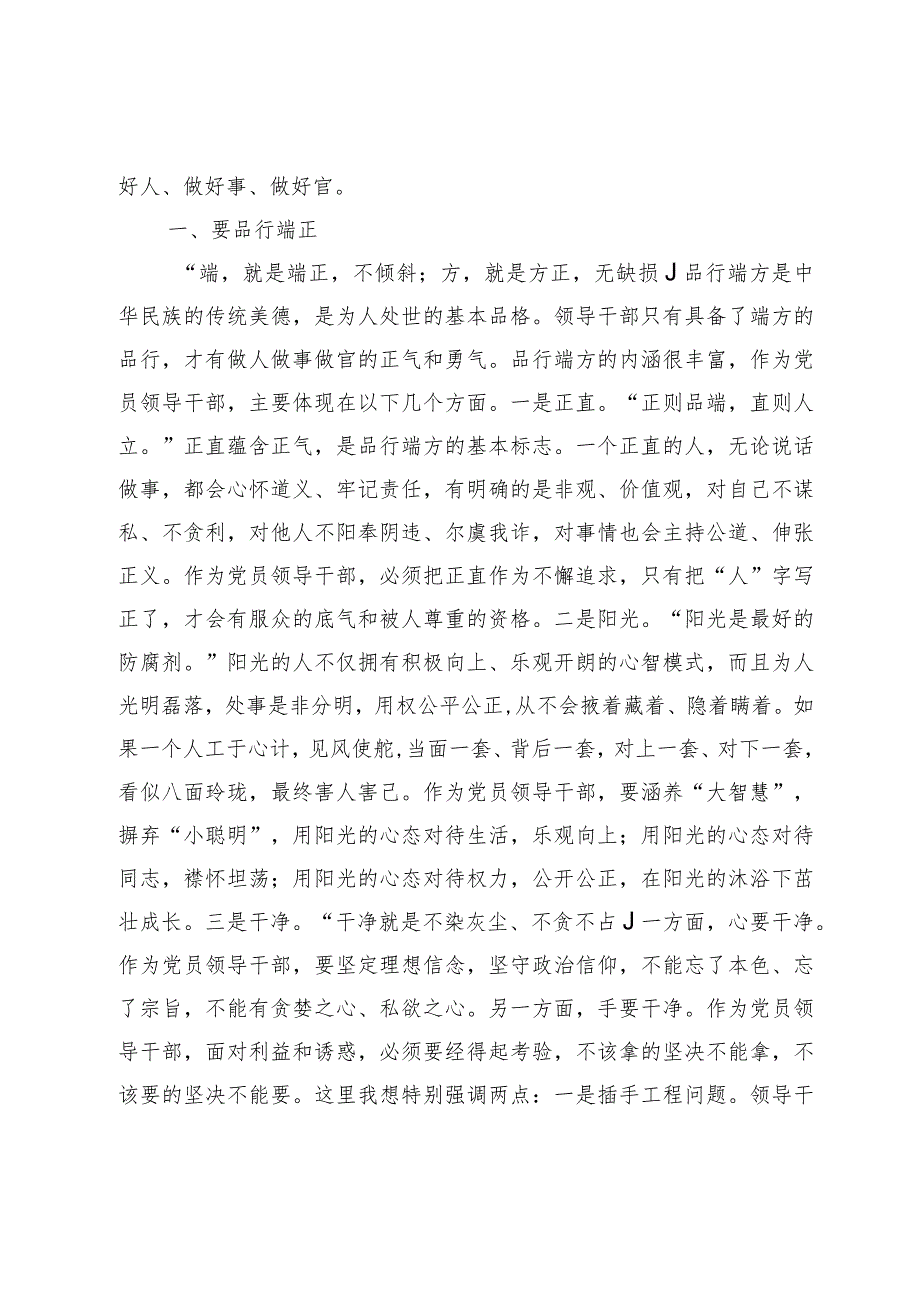 好人、做好事、做好官。
一、要品行端正
“端，就是端正，不倾斜；方，就是方正，无缺损J品行端方是中
华民族的传统美德，是为人处世的基本品格。领导干部只有具备了端方的
品行，才有做人做事做官的正气和勇气。品行端方的内涵很丰富，作为党
员领导干部，主要体现在以下几个方面。一是正直。“正则品端，直则人
立。”正直蕴含正气，是品行端方的基本标志。一个正直的人，无论说话
做事，都会心怀道义、牢记责任，有明确的是非观、价值观，对自己不谋
私、不贪利，对他人不阳奉阴违、尔虞我诈，对事情也会主持公道、伸张
正义。作为党员领导干部，必须把正直作为不懈追求，只有把“人”字写
正了，才会有服众的底气和被人尊重的资格。二是阳光。“阳光是最好的
防腐剂。”阳光的人不仅拥有积极向上、乐观开朗的心智模式，而且为人
光明磊落，处事是非分明，用权公平公正,从不会掖着藏着、隐着瞒着。如
果一个人工于心计，见风使舵,当面一套、背后一套，对上一套、对下一套，
看似八面玲珑，最终害人害己。作为党员领导干部，要涵养“大智慧”，
摒弃“小聪明”，用阳光的心态对待生活，乐观向上；用阳光的心态对待
同志，襟怀坦荡；用阳光的心态对待权力，公开公正，在阳光的沐浴下茁
壮成长。三是干净。“干净就是不染灰尘、不贪不占J一方面，心要干净。
作为党员领导干部，要坚定理想信念，坚守政治信仰，不能忘了本色、忘
了宗旨，不能有贪婪之心、私欲之心。另一方面，手要干净。作为党员领
导干部，面对利益和诱惑，必须要经得起考验，不该拿的坚决不能拿，不
该要的坚决不能要。这里我想特别强调两点：一是插手工程问题。领导干